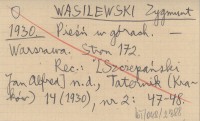 WASILEWSKI Zygmunt
1930. Pieśń w górach. —
Warszawa. Stron 172.
Rec.: [Szczepański
Jan Alfred] n.d., Taternik (Kra-
ków) 14 (1930), nr 2: 47-48.